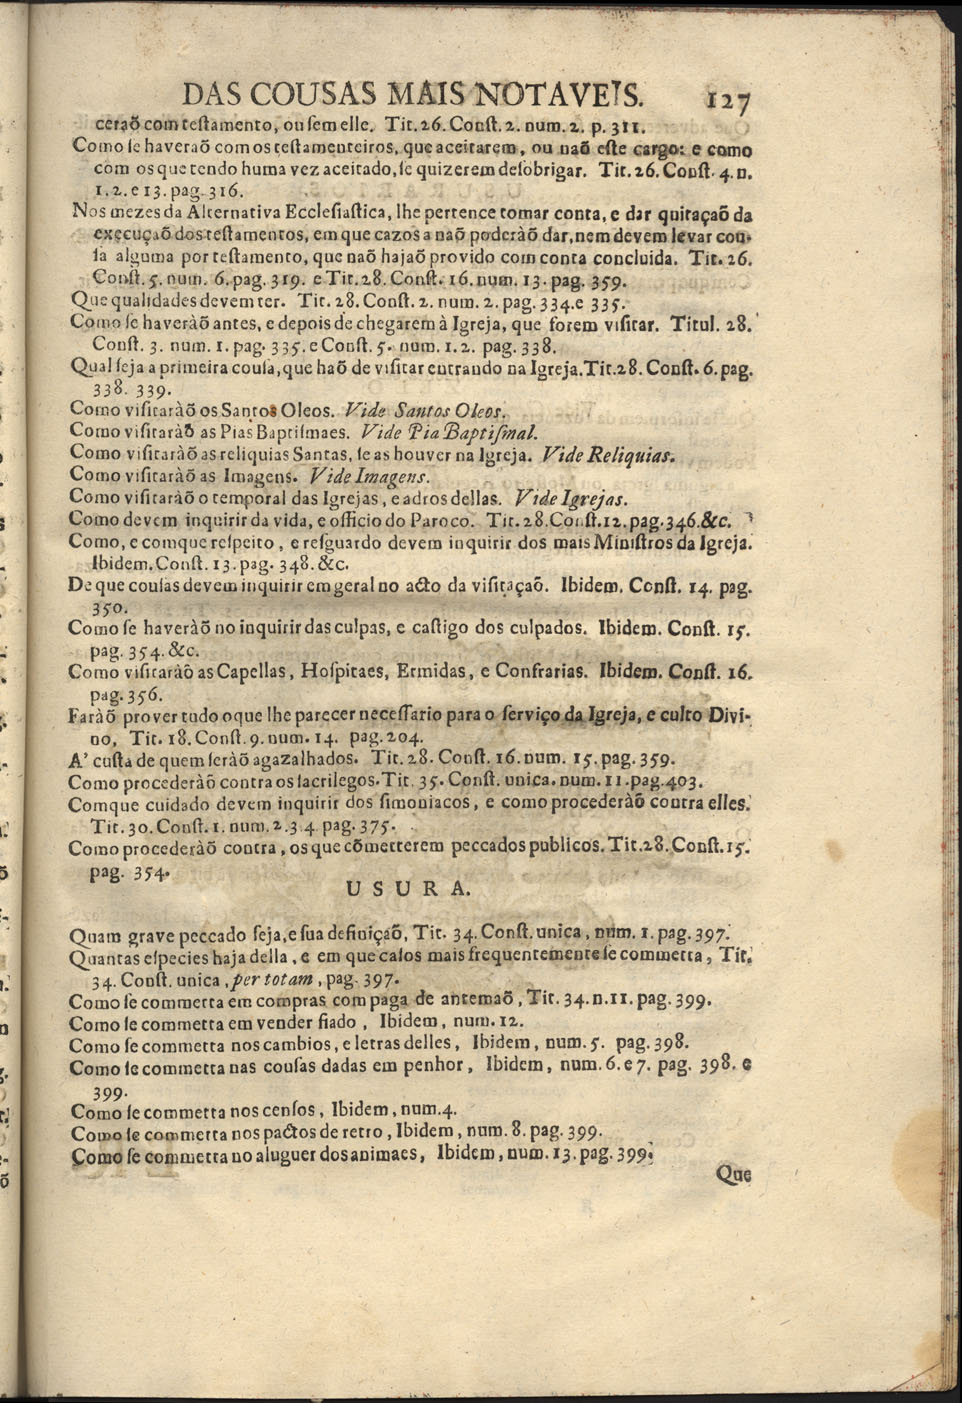 DAS COUSAS MAIS NOTAVEIS. 127
ceraõ com teſtamento, ou ſem elle. Tit. 26. Conſt. 2. num. 2. p. 311.
Como ſe haveraõ com os teſtamenteiros, que aceitarem, ou naõ eſte cargo: e como
com os que tendo huma vez aceitado, ſe quizerem deſobrigar. Tit. 26. Conſt. 4. n.
1. 2. e 13. pag. 316.
Nos mezes da Alternativa Eccleſiaſtica, lhe pertence tomar conta, e dar quitaçaõ da
execuçaõ dos teſtamentos, em que cazos a naõ poderàõ dar, nem devem levar cou-
ſa alguma por teſtamento, que naõ hajaõ provido com conta concluida. Tit. 26.
Conſt. 5. num. 6. pag. 319. e Tit. 28. Conſt. 16. num. 13. pag. 359.
Que qualidades devem ter. Tit. 28. Conſt. 2. num. 2. pag. 334. e 335.
Como ſe haveràõ antes, e depois de chegarem à Igreja, que forem viſitar. Titul. 28.
Conſt. 3. num. 1. pag. 335. e Conſt. 5. num. 1. 2. pag. 338.
Qual ſeja a primeira couſa, que haõ de viſitar entrando na Igreja. Tit. 28. Conſt. 6. pag.
338. 339.
Como viſitaràõ os Santos Oleos. Vide Santos Oleos.
Como viſitaràõ as Pias Baptiſmaes. Vide Pia Baptiſmal.
Como viſitaràõ as reliquias Santas, ſe as houver na Igreja. Vide Reliquias.
Como viſitaràõ as Imagens. Vide Imagens.
Como viſitaràõ o temporal das Igrejas, e adros dellas. Vide Igrejas.
Como devem inquirir da vida, e officio do Paroco. Tit. 28. Conſt. 12. pag. 346. &c.
Como, e com que reſpeito, e reſguardo devem inquirir dos mais Miniſtros da Igreja.
Ibidem. Conſt. 13. pag. 348. &c.
De que couſas devem inquirir em geral no acto da viſitaçaõ. Ibidem. Conſt. 14. pag.
350.
Como ſe haveràõ no inquirir das culpas, e caſtigo dos culpados. Ibidem. Conſt. 15.
pag. 354. &c.
Como viſitaràõ as Capellas, Hoſpitaes, Ermidas, e Confrarias. Ibidem. Conſt. 16.
pag. 356.
Faràõ prover tudo o que lhe parecer neceſſario para o ſerviço da Igreja, e culto Divi-
no, Tit. 18. Conſt. 9. num. 14. pag. 204.
A' cuſta de quem ſeràõ agazalhados. Tit. 28. Conſt. 16. num. 15. pag. 359.
Como procederàõ contra os ſacrilegos. Tit. 35. Conſt. unica. num. 11. pag. 403.
Com que cuidado devem inquirir dos ſimoniacos, e como procederàõ contra elles.
Tit. 30. Conſt. 1. num. 2. 3 4. pag. 375.
Como procederàõ contra, os que cõmetterem peccados publicos. Tit. 28. Conſt. 15.
pag. 354.
USURA.
Quam grave peccado ſeja, e ſua definiçaõ, Tit. 34. Conſt. unica, num. 1. pag. 397.
Quantas eſpecies haja della, e em que caſos mais frequentemente ſe commetta, Tit.
34. Conſt. unica, per totam, pag. 397.
Como ſe commetta em compras com paga de antemaõ, Tit. 34. n. 11. pag. 399.
Como ſe commetta em vender fiado, Ibidem, num. 12.
Como ſe commetta nos cambios, e letras delles, Ibidem, num. 5. pag. 398.
Como ſe commetta nas couſas dadas em penhor, Ibidem, num. 6. e 7. pag. 398. e
399.
Como ſe commetta nos cenſos, Ibidem, num. 4.
Como ſe commetta nos pactos de retro, Ibidem, num. 8. pag. 399.
Como ſe commetta no aluguer dos animaes, Ibidem, num. 13. pag. 399.
Que